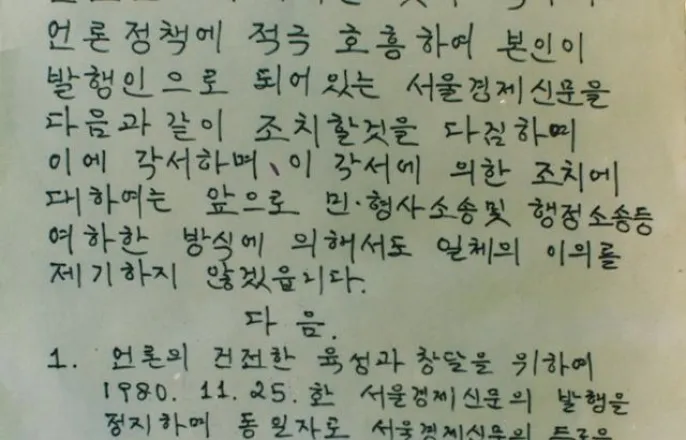 언론정책에 적극 호흥하여 본인이
발행인으로 되어있는 서울경제신문을
다음과 같이 조치할것을 다짐하며
이에 각서하며, 이 각서에 의한 조치에
대하여는 앞으로 민·형사소송및 행정소송등
여하한 방식에 의해서도 일체의 이의를
제기하지 않겠읍니다.
다 음.
1. 언론의 건전한 육성과 창달을 위하여
1980. 11. 25. 한 서울경제신문의 발행을
정지하며 동 일자로 서울경제신문의 등록을